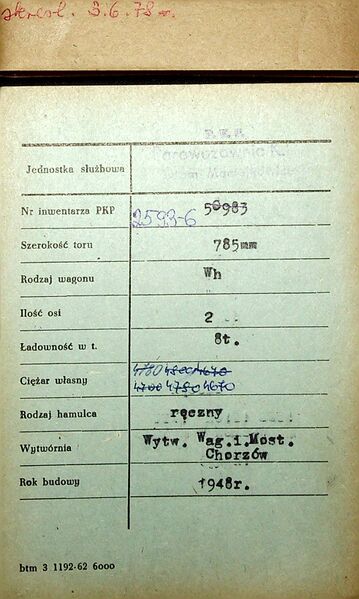 skreśl. 3.6.78 r.
P.K.P.
Parowozownia K.
Jednostka służbowa
Nr inwentarza PKP 2593-6 50983
Szerokość toru 785mm
Rodzaj wagonu Wh
Ilość osi 2
Ładowność w t. 8t.
Ciężar własny 4670
4700 4750 4670
Rodzaj hamulca ręczny
Wytwórnia Wytw. Wag.i.Most.
Chorzów
Rok budowy 1948r.
btm 3 1192-62 6000